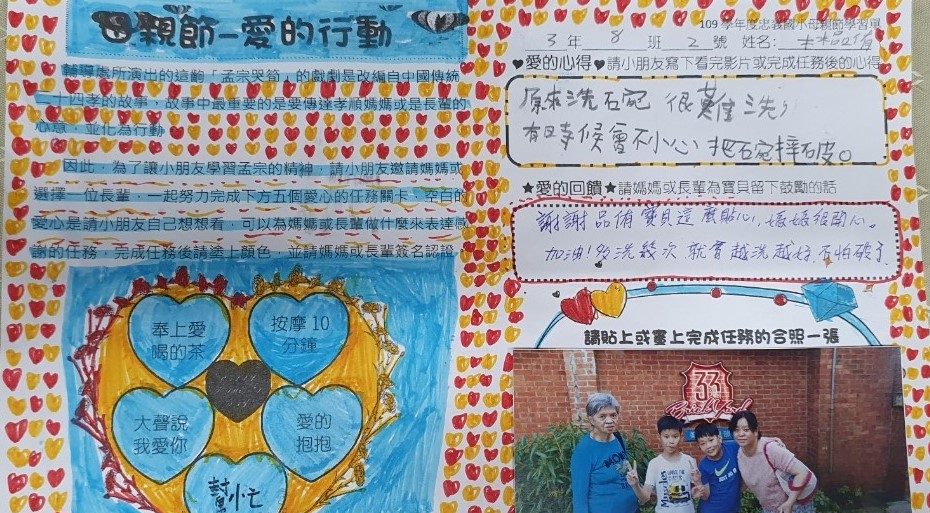 母親節–愛的行動
輔導處所演出的這齣「孟宗哭筍」的戲劇是改編自中國傳統
二十四孝的故事，故事中最重要的是要傳達孝順媽媽或是長輩的
心意，並化為行動。
因此，為了讓小朋友學習孟宗的精神，請小朋友邀請媽媽或
選擇一位長輩，一起努力完成下方五個愛心的任務關卡，空白的
愛心是請小朋友自己想想看，可以為媽媽或長輩做什麼來表達感
謝的任務，完成任務後請塗上顏色，並請媽媽或長輩簽名認證
奉上愛
喝的茶
按摩 10
分鐘
大聲說
我愛你
愛的
抱抱
幫小忙
109 學年度忠義國小母親節學習單
3 年 8 班 2 號 姓名:
♥愛的心得♥請小朋友寫下看完影片或完成任務後的心得
原來洗石宛 很難洗,
有時候會不小心 把石宛摔破。
★愛的回饋★請媽媽或長輩為寶貝留下鼓勵的話
謝謝品侑寶貝這麼貼心, 媽媽很開心。
加油!多洗幾次 就會越洗越好,不怕破了
請貼上或畫上完成任務的合照一張
33